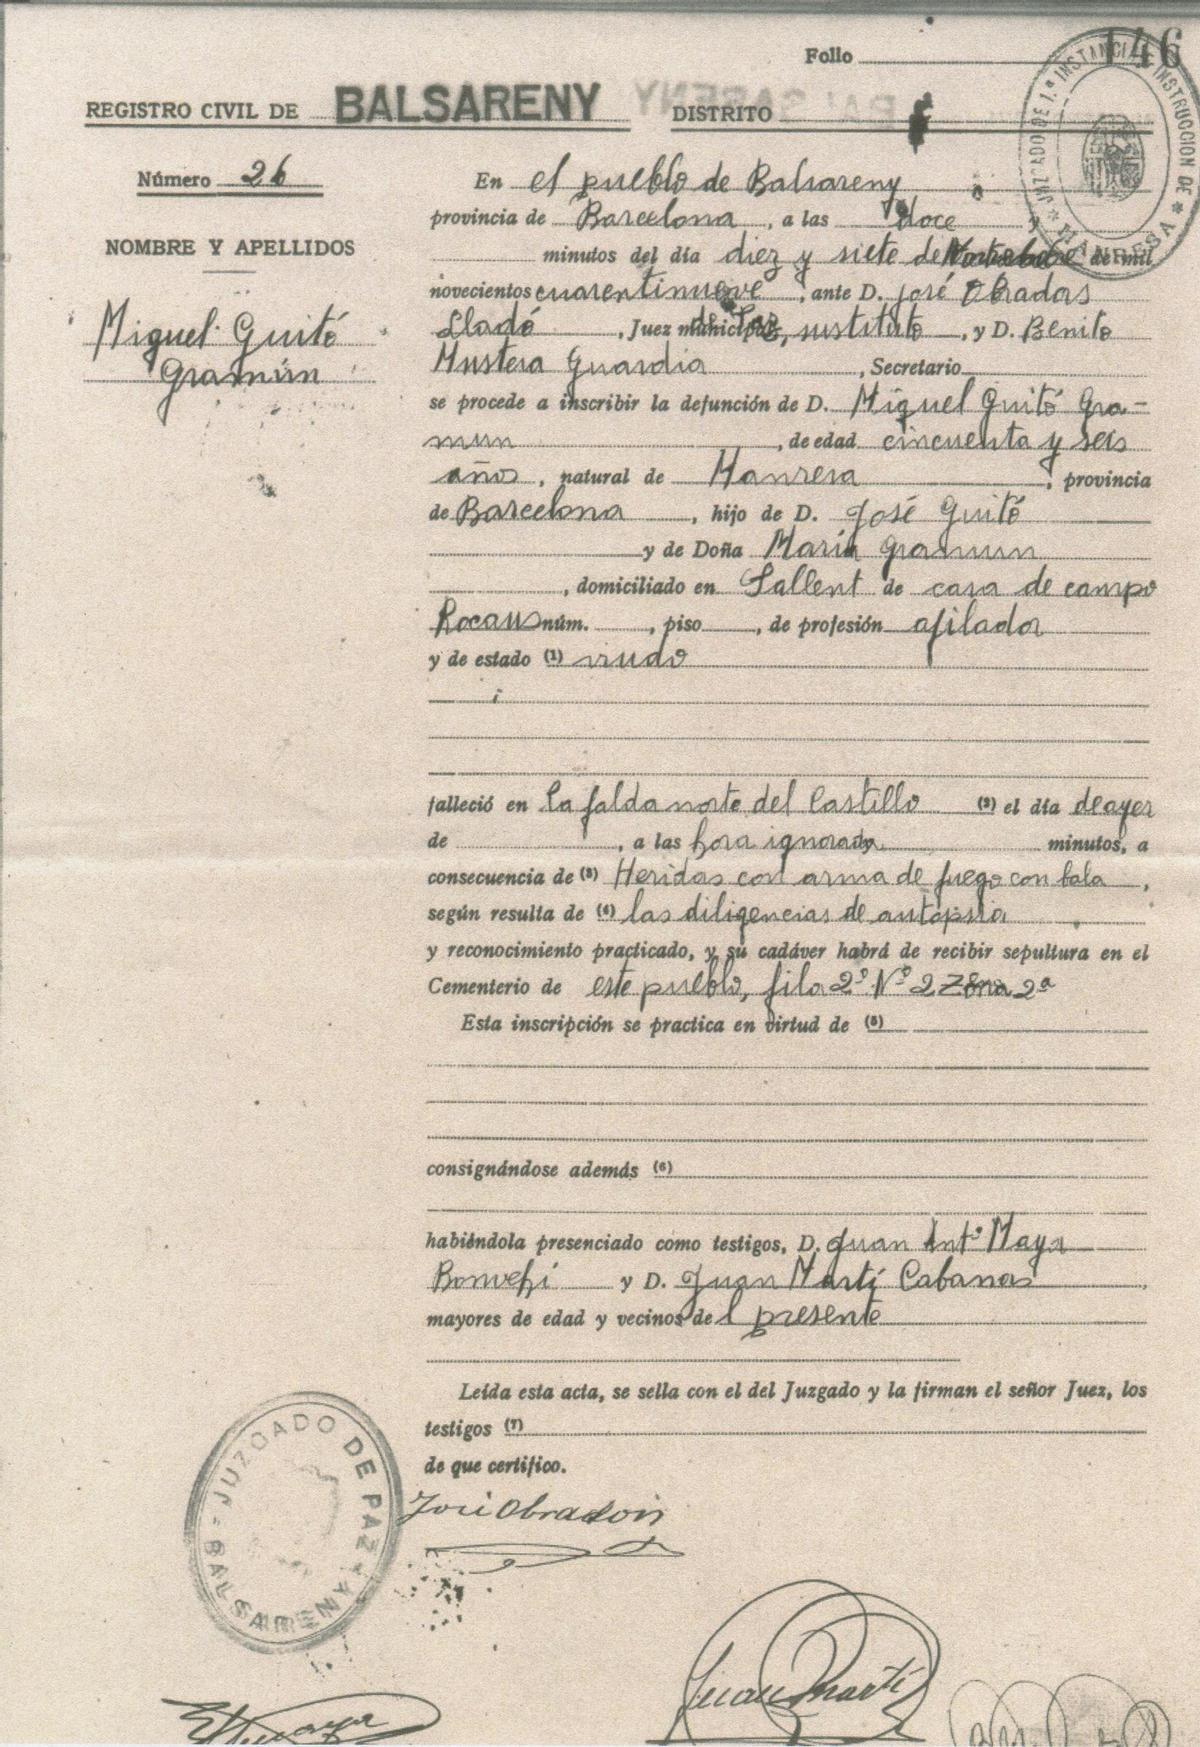 Folio 146
REGISTRO CIVIL DE BALSARENY DISTRITO
JUZGADO DE 1.ª INSTANCIA INSTRUCCION DE * MANRESA *
Número 26
NOMBRE Y APELLIDOS
Miguel Guitó
Gramún
En el pueblo de Balsareny
provincia de Barcelona, a las doce y
minutos del día diez y siete de de mil
novecientos cuarentinueve, ante D. José Obradas
Lladó, Juez municipal, de Paz, sustituto, y D. Benito
Mustera Guardia, Secretario
se procede a inscribir la defunción de D. Miguel Guitó Gra-
mun, de edad cincuenta y seis
años, natural de Manresa, provincia
de Barcelona, hijo de D. José Guitó
y de Doña María Gramun
, domiciliado en Sallent de casa de campo
Rocaus núm. , piso , de profesión afilador
y de estado (1) viudo
falleció en la falda norte del Castillo (2) el día de ayer
de , a las hora ignorada minutos, a
consecuencia de (3) Heridas con arma de fuego con bala,
según resulta de (4) las diligencias de autopsia
y reconocimiento practicado, y su cadáver habrá de recibir sepultura en el
Cementerio de este pueblo, fila 2ª Nº 2 Zona 2ª
Esta inscripción se practica en virtud de (5)
consignándose además (6)
habiéndola presenciado como testigos, D. Juan Antº Maya
Bonvehi y D. Juan Martí Cabanas,
mayores de edad y vecinos del presente
Leída esta acta, se sella con el del Juzgado y la firman el señor Juez, los
testigos (7)
de que certifico.
JUZGADO DE PAZ BALSARENY
José Obradors
Juan Martí